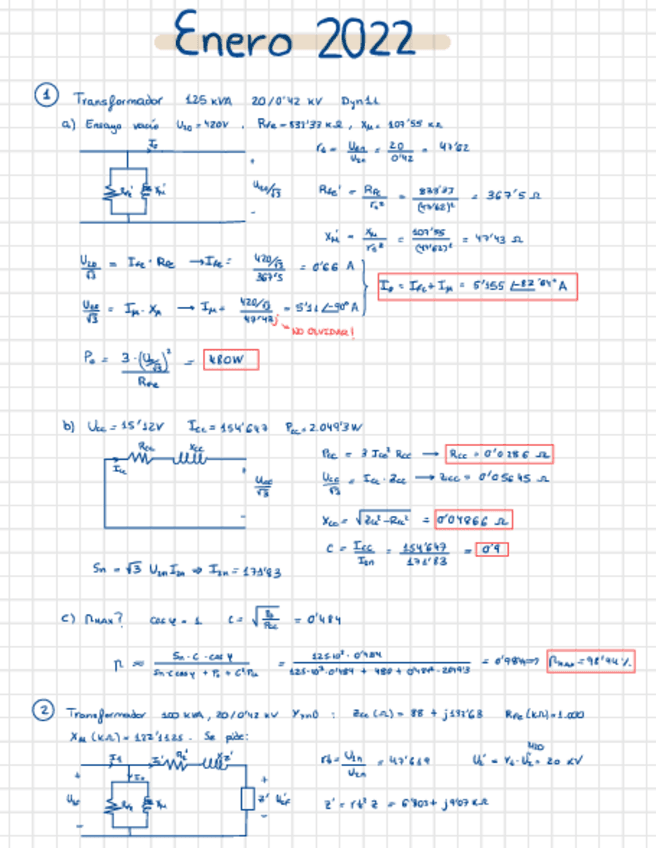 Enero 2022
1 Transformador 125 kVA 20/0'42 kV Dyn11
a) Ensayo vacío U20 = 420V . Rfe = 833'33 kΩ , Xμ = 107'55 kΩ
I0
rt = U1n/U2n = 20/0'42 = 47'62
Rfe' Xμ' U20/√3
Rfe' = Rfe/rt² = 833'33/(47'62)² = 367'5 Ω
Xμ' = Xμ/rt² = 107'55/(47'62)² = 47'43 Ω
U20/√3 = Ife · Rfe → Ife = 420/√3 / 367'5 = 0'66 A
U20/√3 = Iμ · Xμ → Iμ = 420/√3 / 47'43j = 5'11 ∠-90° A
I0 = Ife + Iμ = 5'155 ∠-82'64° A
NO OLVIDAR!
P0 = 3·(U20/√3)² / Rfe = 480W
b) Ucc = 15'12V Icc = 154'647 Pcc = 2.049'3W
Rcc Xcc
Icc
Ucc/√3
Pcc = 3 Icc² Rcc → Rcc = 0'0286 Ω
Ucc/√3 = Icc · Zcc → Zcc = 0'05645 Ω
Xcc = √Zcc² - Rcc² = 0'04866 Ω
C = Icc/I2n = 154'647/171'83 = 0'9
Sn = √3 U2n I2n ⇒ I2n = 171'83
c) ηMAX? cos φ = 1 C = √P0/Pcc = 0'484
η = Sn · C · cos φ / Sn · C cos φ + P0 + C² Pcc = 125·10³ · 0'484 / 125·10³ · 0'484 + 480 + 0'484² · 2049'3 = 0'984 ⇒ ηMAX = 98'44%
2 Transformador 100 kVA, 20/0'42 kV Yzn0 : Zcc (Ω) = 88 + j137'63 Rfe (kΩ) = 1.000
Xμ (kΩ) = 122'1125 . Se pide:
rt = U1n/U2n = 47'619
z' = rt² z =